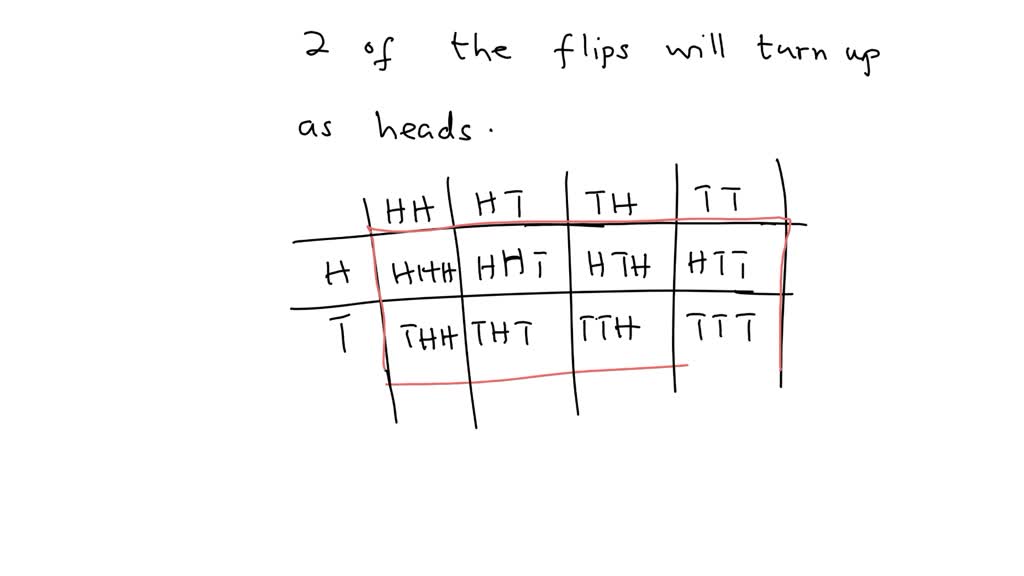 2 of the flips will turn up
as heads.
HH HT TH TT
H HHH HHT HTH HTT
T THH THT TTH TTT